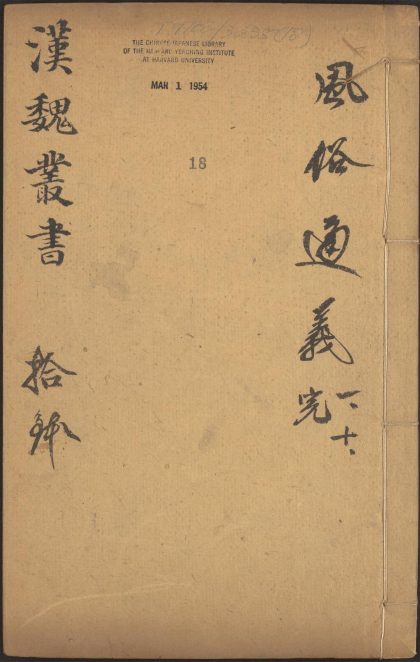 THE CHINESE-JAPANESE LIBRARY
OF THE HARVARD-YENCHING INSTITUTE
AT HARVARD UNIVERSITY
MAR 1 1954
18
風俗通義
一、十、
完
漢魏叢書 拾